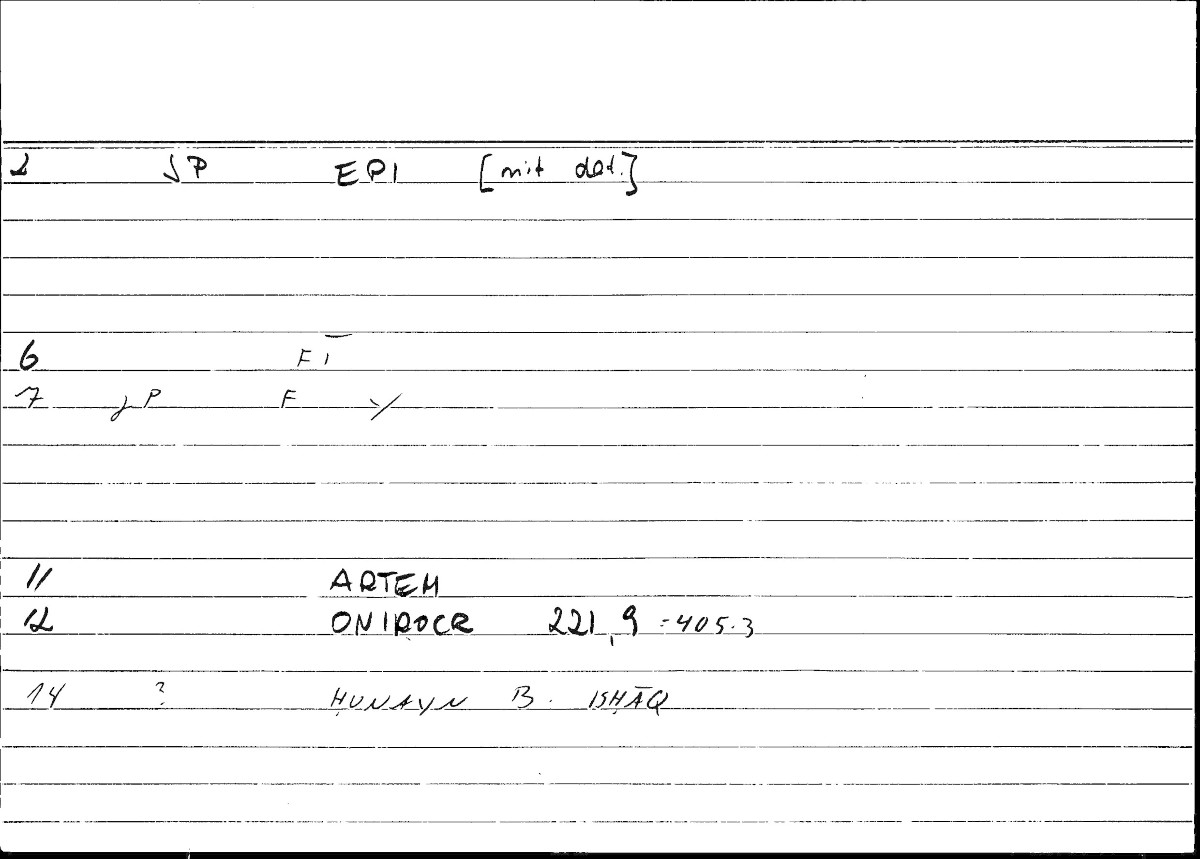 2 JP EPI [mit dat.]
6 FĪ
7 JP F
11 ARTEM
12 ONIROCR 221,9 =405.3
14 ? ḤUNAYN B. ISḤĀQ